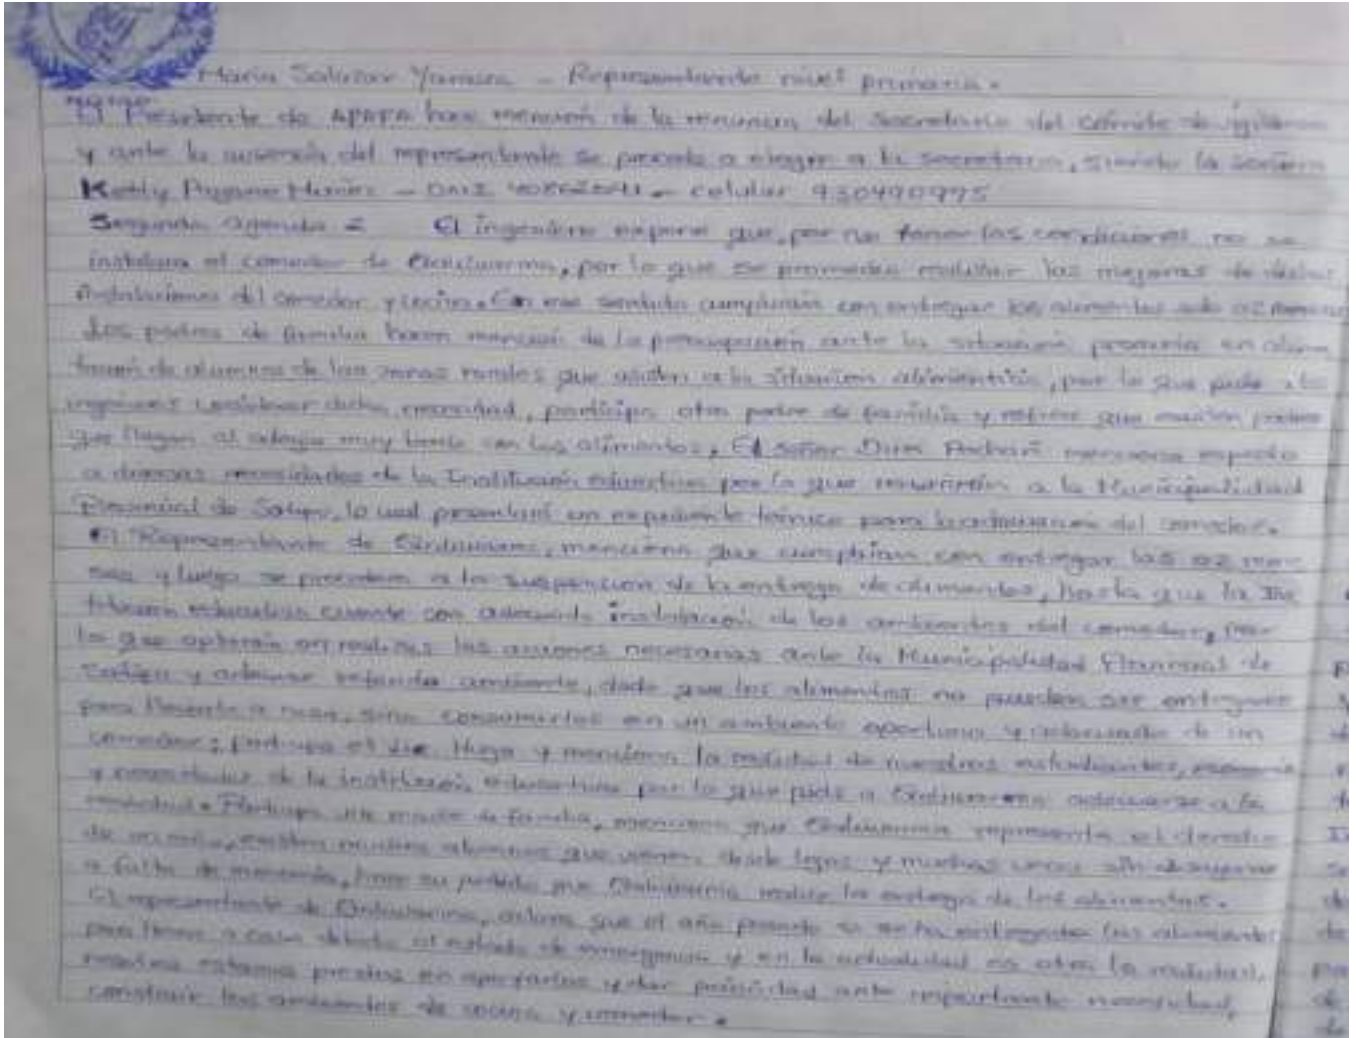 Maria Salazar Yarasca - Representante nivel primaria.
El Presidente de APAFA hace mención de la renuncia del secretario del comité de vigilancia
y ante la ausencia del representante se procede a elegir a la secretaria, siendo la señora
Ketty - DNI - celular 930490995
Segunda agenda = El ingeniero expone que, por no tener las condiciones no se
instalara el comedor de Qaliwarma, por lo que se realizar las mejoras de dichas
instalaciones del comedor y cocina. En ese sentido cumplirán con entregar los alimentos solo 02 meses
Los padres de familia hacen mención de la preocupación ante la situación en
de alumnos de las zonas rurales que a la situacion alimenticia, por lo que pide al
ingeniero considerar dicha necesidad, participa otro padre de familia y refiere que existen padres
que llegan al colegio muy tarde con los alimentos, El señor menciona respecto
a diversas necesidades de la Institución educativa por lo que a la Municipalidad
Provincial de Satipo, lo cual presentará un expediente técnico para la adecuación del comedor.
El Representante de Qaliwarma, menciona que cumplirán con entregar los 02 me-
ses y luego se procederá a la suspención de la entrega de alimentos, hasta que la Ins
titución educativa cuente con adecuada instalación de los ambientes del comedor, por
lo que optarán en realizar las acciones necesarias ante la Municipalidad Provincial de
Satipo y adecuar referido ambiente, dado que los alimentos no pueden ser entregados
para llevarlo a casa, sino consumirlos en un ambiente oportuno y adecuado de un
comedor; participa el Lic. Hugo y menciona la realidad de nuestros estudiantes,
y necesidades de la institución educativa por lo que pide a Qaliwarma adecuarse a la
necesidad. Participa una madre de familia, menciona que Qaliwarma representa el derecho
de un niño, existen muchos alumnos que vienen desde lejos y muchas veces sin desayunar
a falta de economía, hace su pedido que Qaliwarma realice la entrega de los alimentos.
El representante de Qaliwarma, aclara que el año pasado si se ha entregado los alimentos
para llevar a casa debido al estado de emergencia y en la actualidad es otra la realidad,
nosotros estamos prestos en apoyarlos y dar prioridad ante importante necesidad,
construir los ambientes de cocina y comedor.